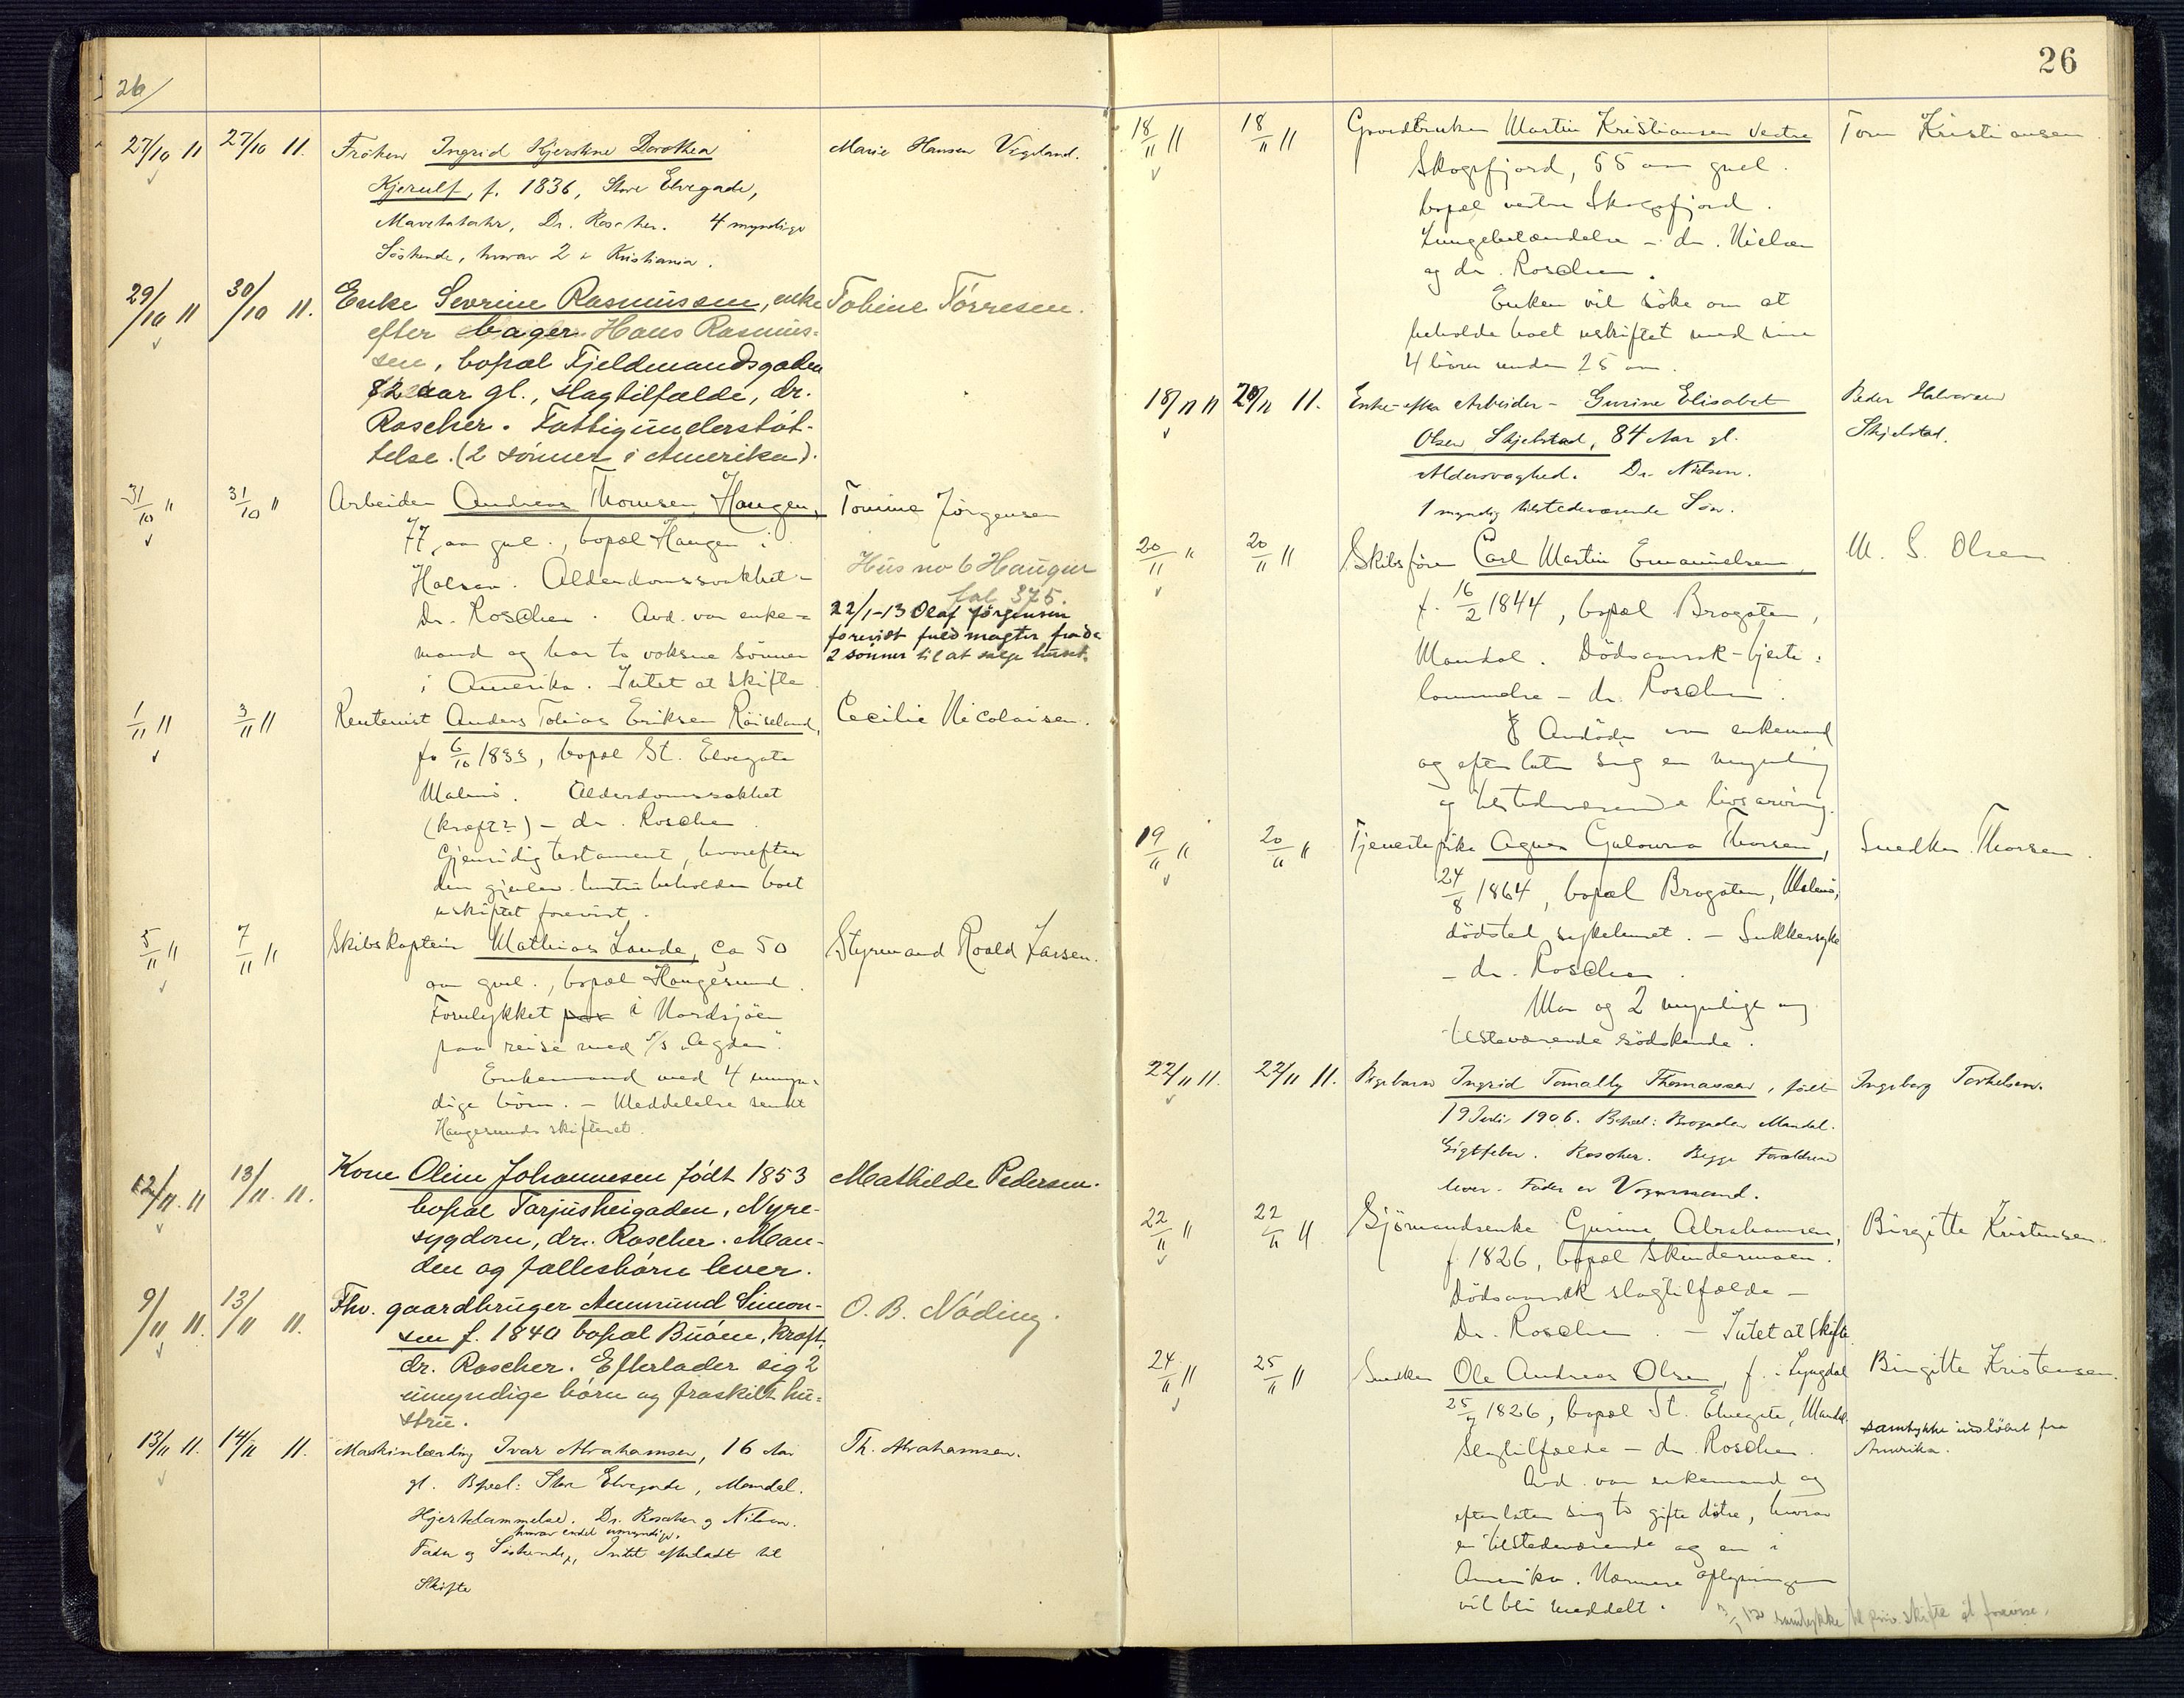 26/
27/10 11 27/10 11. Fröken Ingrid Kjerstine Dorothea Marie Hansen Vigeland.
Kjerulf, f. 1836, Store Elvegade,
Dr. Roscher. 4 myndige
Söskende, hvorav 2 i Kristiania.
29/10 11 30/10 11. Enke Sevrine Rasmussen, enke Tobine Törresen.
efter bager Hans Rasmus-
sen, bopæl Fjeldmandsgaden
82 aar gl., slagtilfælde, dr.
Roscher. Fattigunderstöt-
telse. (2 sönner i Amerika).
31/10 " 31/10 " Arbeider Andreas Thomsen Haugen, Tomine Jörgensen
77 aar gml., bopæl Haugen i
Halsen. Alderdomssvakhet - Hus no 6 Haugen
fol 375.
Dr. Roscher. Avd. var enke- 22/1-13 Olaf Jörgensen
forevist fuldmagter fra de
mand og har to voksne sönner 2 sönner til at sælge huset.
i Amerika. Intet at skifte
1/11 11 3/11 11 Rentenist Anders Tobias Eriksen Röiseland, Cecilie Nicolaisen.
f. 6/10 1833, bopæl St. Elvegate
Malmö. Alderdomssvakhet
(kræft?) - dr. Roscher.
Gjensidig testament, hvorefter
den gjenlev. hustru beholder boet
uskiftet forevist.
5/11 " 7/11 " Skibskaptein Mathias Lande, ca 50 Styrmand Roald Larsen.
aar gml., bopæl Haugesund.
Forulykket paa i Nordsjöen
paa reise med s/s "Agder".
Enkemand med 4 umyn-
dige börn. - Meddelelse sendt
Haugesunds skifteret.
12/11. 11 13/11. 11. Kone Oline Johannesen födt 1853 Mathilde Pedersen.
bopæl Tarjusheigaden, Nyre-
sygdom, dr. Roscher. Man-
den og fællesbörn lever.
9/11 11. 13/11 11. Fhv. gaardbruger Ammund Simon- O. B. Nöding.
sen f. 1840 bopæl Buöen, kræft,
dr. Roscher. Efterlader sig 2
umyndige börn og fraskilt hu-
stru.
13/11 11. 14/11 11. Maskinlærling Ivar Abrahamsen, 16 Aar Th. Abrahamsen.
gl. Bopæl: Store Elvegade, Mandal.
Hjertelammelse. Dr. Roscher og Nilsen.
hvorav endel umyndige.
Fader og Söskende, Intet efterladt til
Skifte
26
18/11 11 18/11 11 Gaardbruker Martin Kristiansen Vestre Tom Kristiansen.
Skogsfjord, 55 aar gml.
bopæl vestre Skogsfjord.
Lungebetændelse - dr. Nielsen
og dr. Roscher.
Enken vil söke om at
beholde boet uskiftet med sine
4 börn under 25 aar.
18/11 11 20/11 11. Enke efter Arbeider - Gurine Elisabet Peder Halvorsen
Olsen Skjelstad, 84 Aar gl. Skjelstad.
Aldersvaghed. Dr. Nilsen.
1 myndig tilstedeværende Sön.
20/11 " 20/11 " Skibsförer Carl Martin Emanuelsen, M. S. Olsen
f. 16/2 1844, bopæl Brogaten,
Mandal. Dödsaarsak - hjerte-
lammelse - dr. Roscher.
Avdöde var enkemand
og efterlater sig en myndig
og tilstedeværende livsarving.
19/11 " 20/11 " Tjenestepike Agnes Gulowna Thorsen, Snedker Thorsen.
24/8 1864, bopæl Brogaten, Malmö,
dödsted sykehuset. - Sukkersyke
- dr. Roscher.
Mor og 2 myndige og
tilsteværende södskende.
22/11 11. 22/11 11. Pigebarn Ingrid Tomally Thomassen, födt Ingeborg Torkelsen.
19 Juli 1906. Bopæl: Brogaden Mandal.
Gigtfeber. Roscher. Begge Forældrene
lever. Fader er Vognmand.
22/11 " 22/11 11 Sjömandsenke Gurine Abrahamsen, Birgitte Kristensen.
f. 1826, bopæl Skindermoen.
Dödsaarsak slagtilfælde -
Dr. Roscher. - Intet at skifte
24/11 11 25/11 11 Snedker Ole Andreas Olsen, f. i Lyngdal Birgitte Kristensen.
25/7 1826, bopæl St. Elvegate, Mandal. samtykke indlöbet fra
Slagtilfælde - dr. Roscher. Amerika.
Avd. var enkemand og
efterlater sig to gifte dötre, hvorav
en tilstedeværende og en i
Amerika. Nærmere oplysninger
vil bli meddelt.
samtykke til priv. skifte